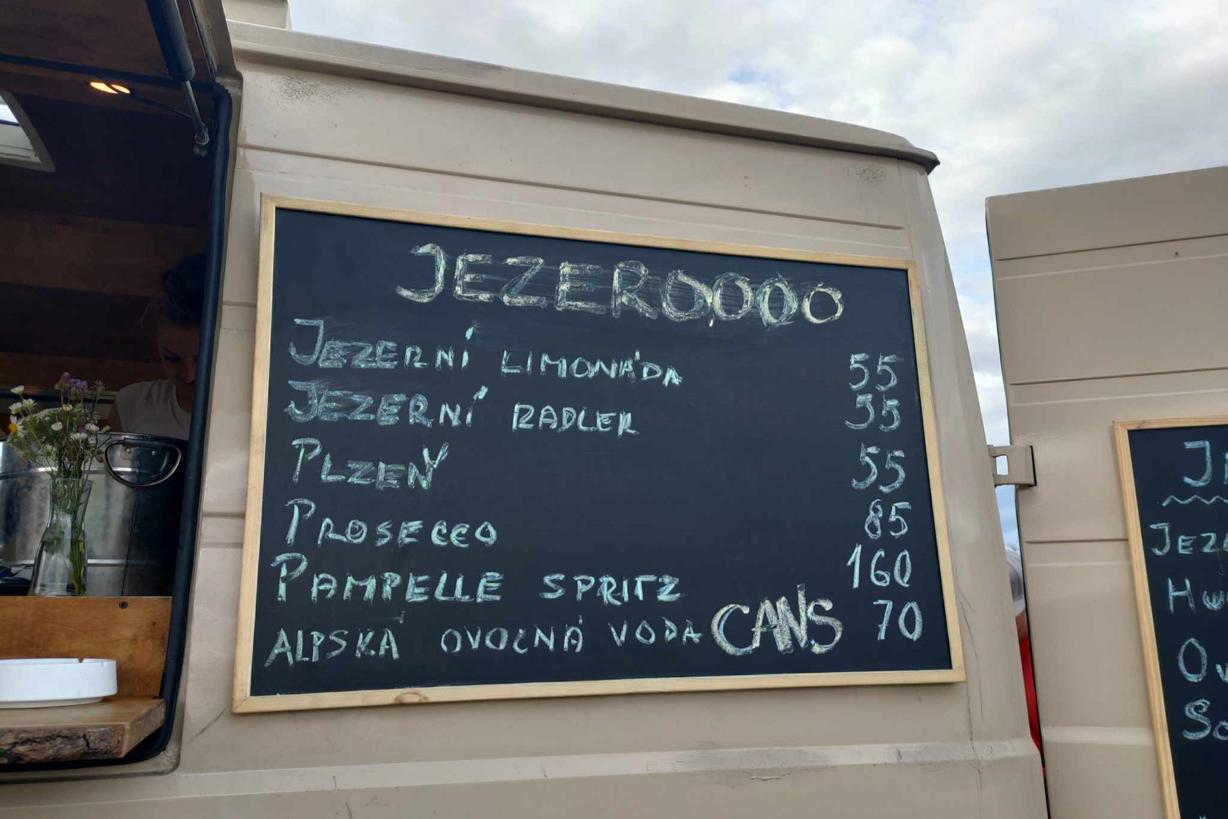 JEZEROOOO
JEZERNÍ LIMONÁDA 55
JEZERNÍ RADLER 55
PLZEŇ 55
PROSECCO 85
PAMPELLE SPRITZ 160
ALPSKÁ OVOCNÁ VODA CANS 70